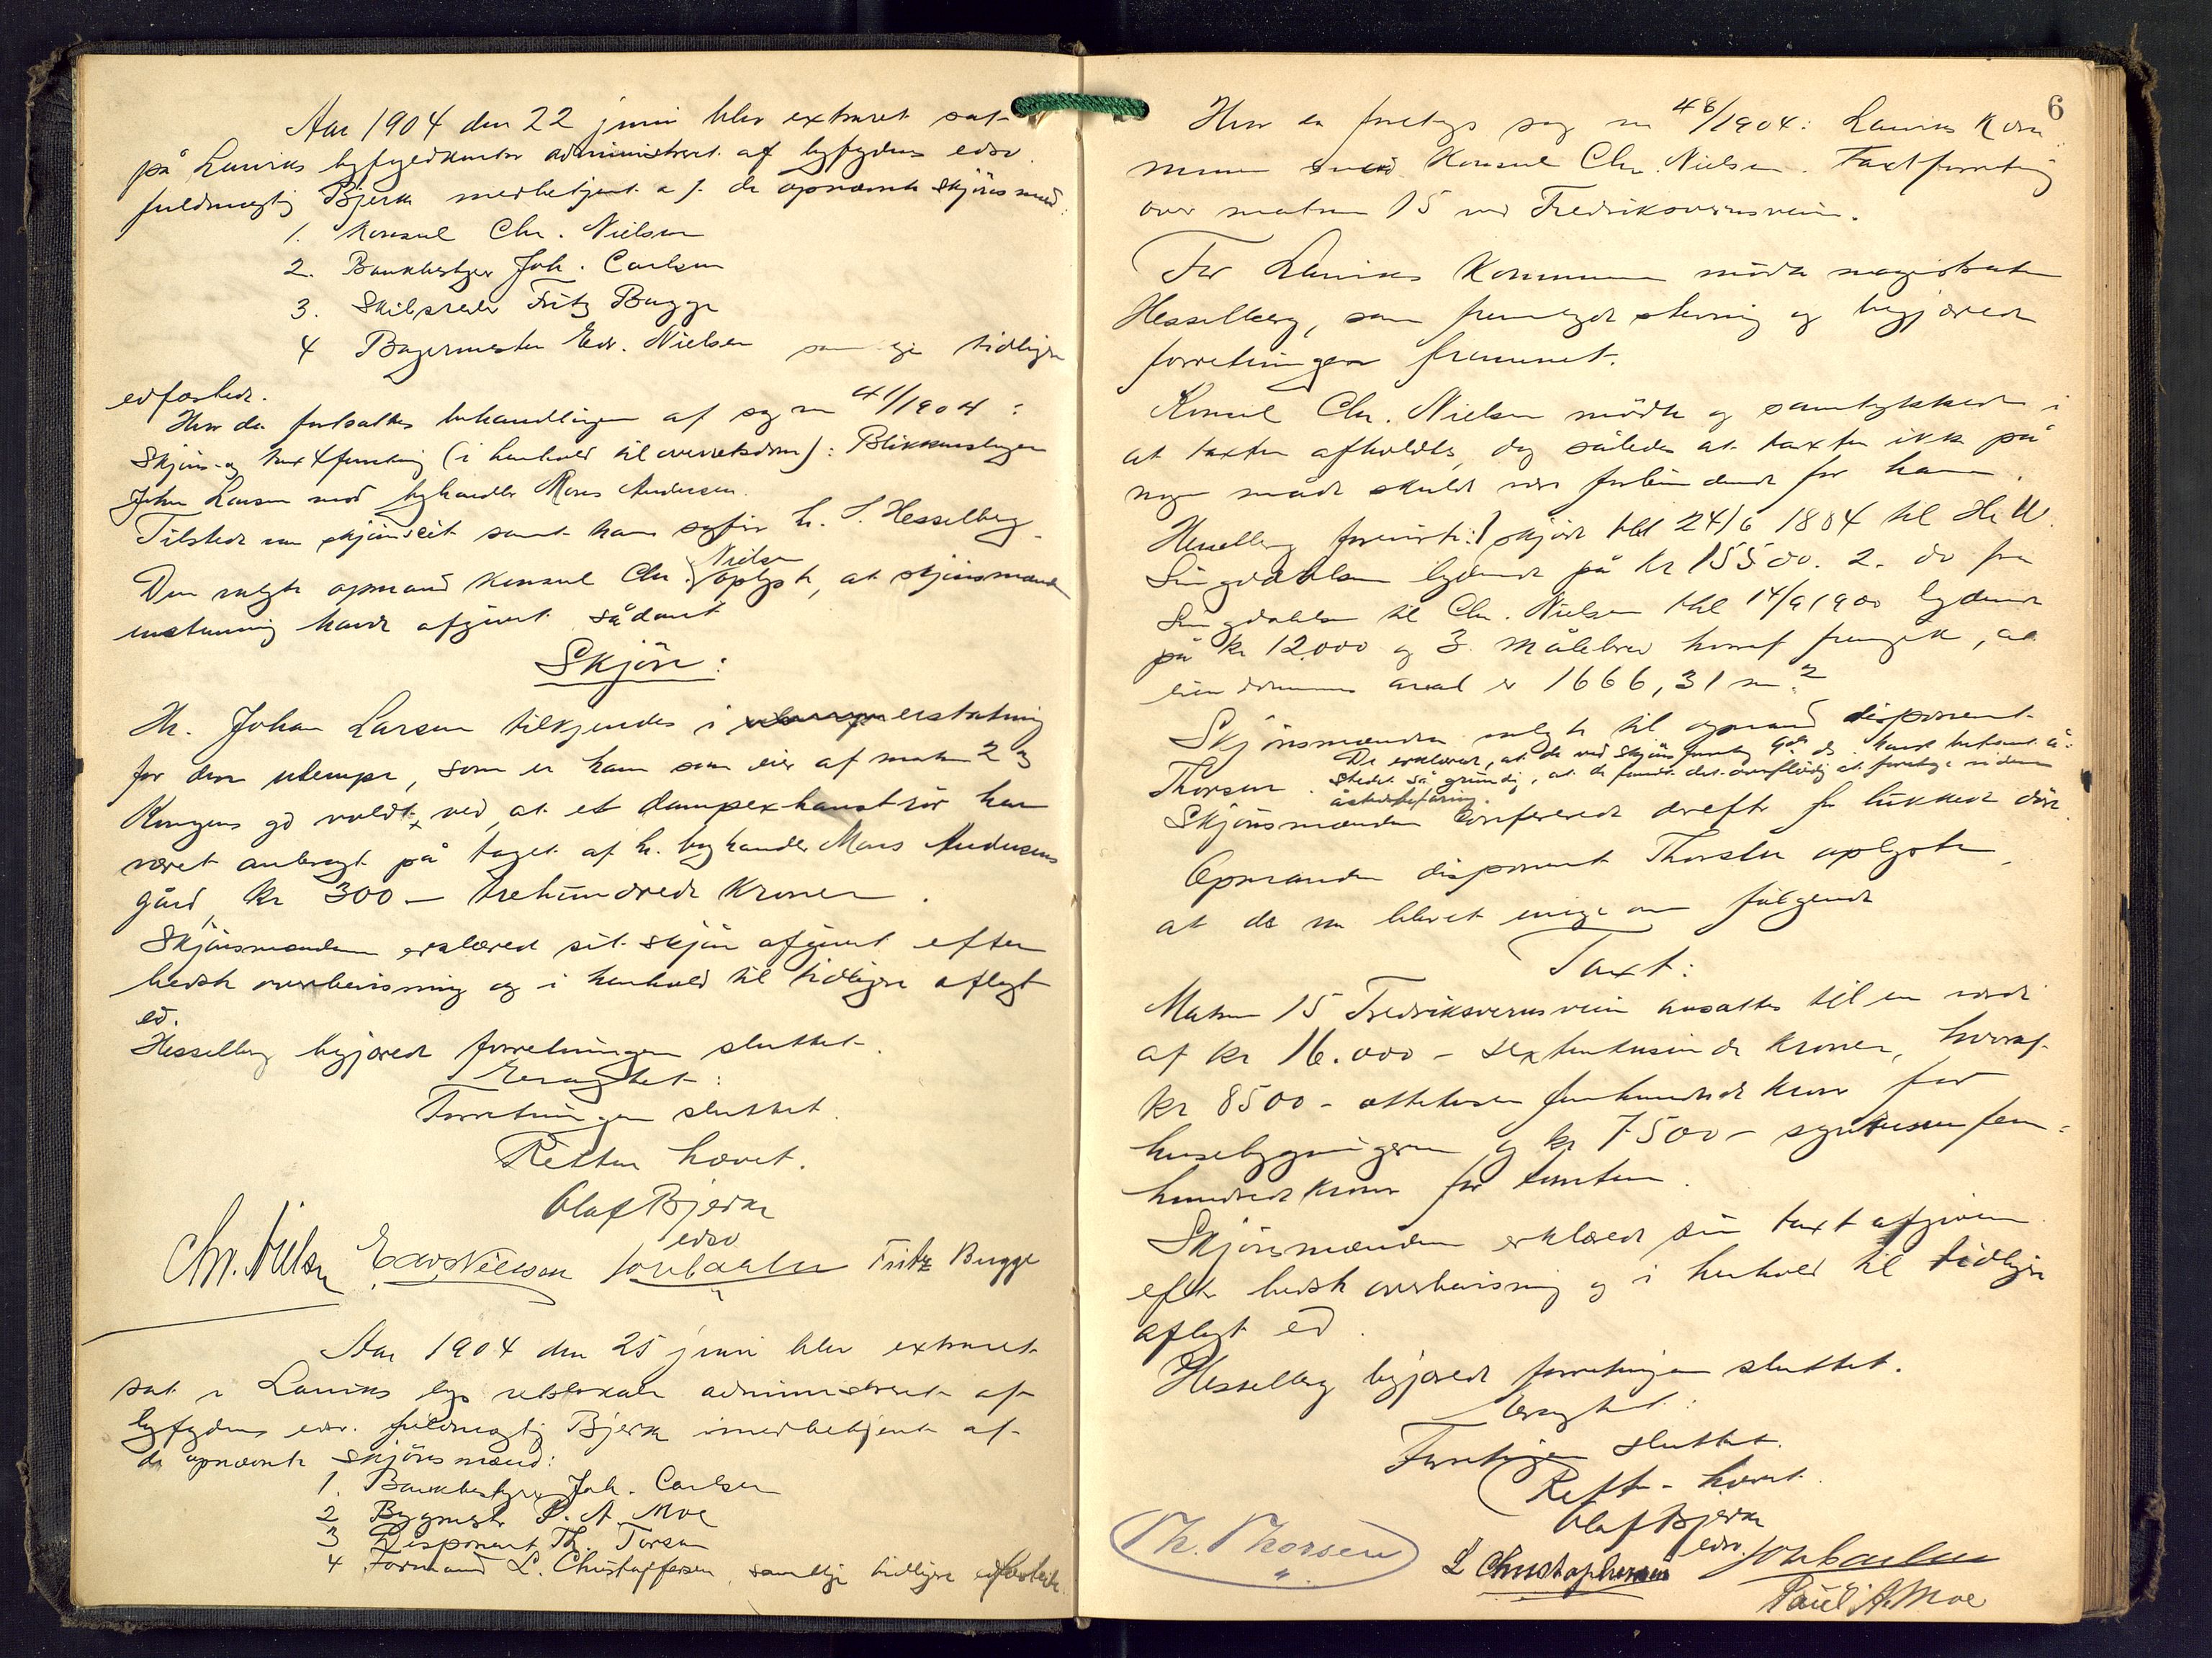 Aar 1904 den 22 juni blev extraret sat
på Laurviks byfogedkontor administreret af byfogdens edsv.
fuldmægtig Bjerke medbetjent af de opnævnte skjønsmænd:
1. Konsul Chr. Nielsen
2. Bankbestyrer Joh. Carlsen
3. Skibsreder Fritz Bugge
4 Bagermester Edv. Nielsen samtlige tidligere
edfæstede.
Hvor da fortsattes behandlingen af sag no 41/1904:
Skjøns- og taxtforretning (i henhold til overretsdom): Blikkenslager
Johan Larsen mod byhandler Mons Andersen.
Tilstede var skjønsleit samt som sagfør h. S. Hesselberg.
Den valgte opmand konsul Chr. Nielsen oplyste, at skjønsmændene
enstemmig havde afgivet sådant
Skjøn:
Hr. Johan Larsen tilkjendes i erstatning
for den ulempe, som er ham som eier af matr no 2 og
Kongens gd voldt, ved at et dampexhaustrør har
været anbragt på taget af h. byhandler Mons Andersens
gård, kr 300 — trehundrede kroner.
Skjønsmændene erklærede sit skjøn afgivet efter
bedste overbevisning og i henhold til tidligere aflagt
ed.
Hesselberg begjærede forretningen sluttet.
Eragtet:
Forretningen sluttet.
Retten hævet.
Olaf Bjerke
edsv
Chr. Nielsen Edv Nielsen Joh Carlsen Fritz Bugge
Aar 1904 den 25 juni blev extraret
sat i Laurviks bys retslokale administreret af
byfogdens edsv. fuldmægtig Bjerke medbetjent af
de opnævnte skjønsmænd:
1. Bankbestyrer Joh. Carlsen
2 Bygmester P. A. Moe
3 Disponent Th. Torsen
4 Formand L. Christoffersen, samtlige tidligere edfæstede.
6
Hvor da foretoges sag no 48/1904: Laurviks Kom
mune mod Konsul Chr. Nielsen. Taxtforretning
over matr no 15 ved Fredriksværnsveien.
For Laurviks Kommune mødte magistraten
Hesselberg, som fremlagde stevning og begjærede
forretningen fremmet.
Konsul Chr. Nielsen mødte og samtykkede i
at taxten afholdtes, dog således at taxten ikke på
nogen måde skulde være forbindende for ham.
Hesselberg foreviste: 1 skjøde tbl 24/6 1884 til H. W.
Lingdahlsen lydende på kr 15500. 2. do fra
Lingdahlsen til Chr. Nielsen tbl 14/9 1900 lydende
på kr 12.000 og 3. målebrev hvoraf fremgik, at
eiendommens areal er 1666,31 m².
Skjønsmændene valgte til opmand disponent
Thorsen. De erklærede, at de ved skjønsforretng gdo ds. havde befaret å-
stedet så grundig, at de fandt det overflødig at foretage videre
åstedsbefaring.
Skjønsmændene konfererede derefter for lukkede døre.
Opmanden disponent Thorsen oplyste,
at de var blevet enige om følgende
Taxt:
Matr no 15 Fredriksværnsveien ansattes til en værdi
af kr 16.000 – sextentusinde kroner, hvoraf
kr 8500 – ottetusen femhundrede kroner for
husebygningerne og kr 7500 – syvtusen fem-
hundrede kroner for tomten.
Skjønsmændene erklærede sin taxt afgiven
efter bedste overbevisning og i henhold til tidligere
aflagt ed.
Hesselberg begjærede forretningen sluttet.
Eragtet:
Forretningen sluttet.
Retten hævet.
Olaf Bjerke
edsv.
Th. Thorsen L Christophersen Joh Carlsen
Paul A. Moe